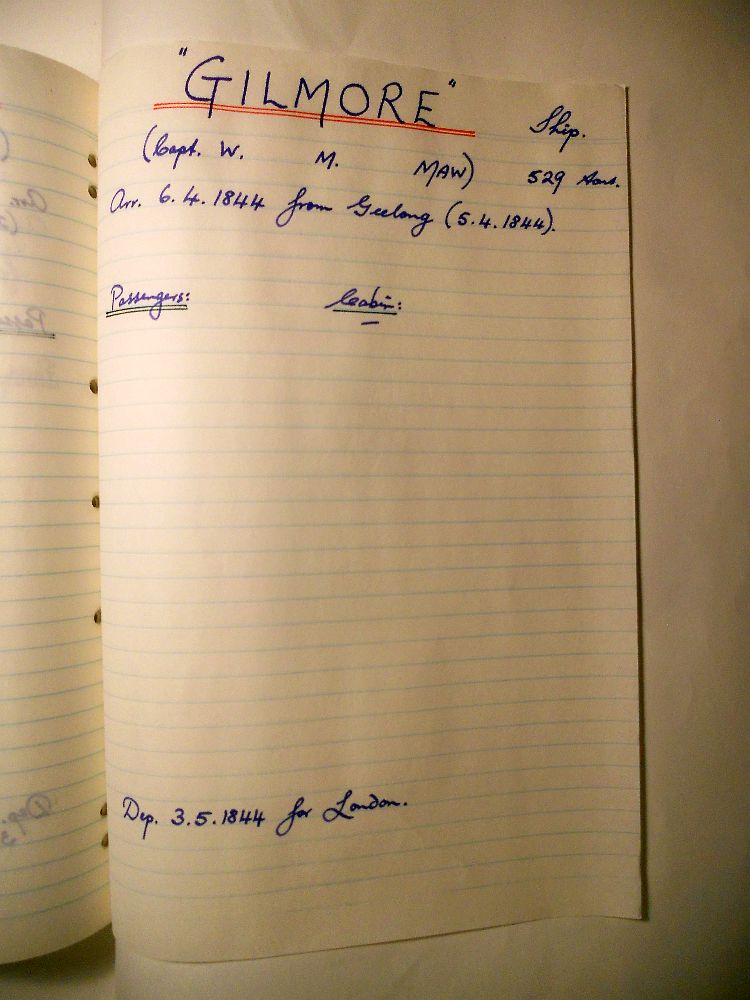 "GILMORE" Ship.
(Capt. W. M. MAW) 529 tons.
Arr. 6.4.1844 from Geelong (5.4.1844).
Passengers: Cabin:
Dep. 3.5.1844 for London.